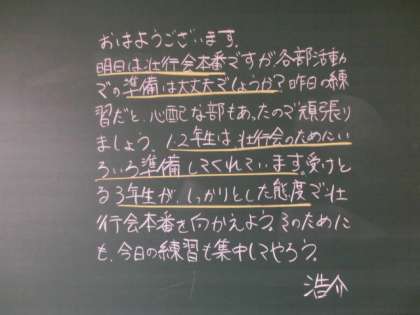 おはようございます。
明日は壮行会本番ですが各部活動
での準備は大丈夫でしょうか？昨日の練
習だと、心配な部もあったので頑張り
ましょう。1.2年生は、壮行会のためにい
ろいろ準備してくれています。受けと
る3年生が、しっかりとした態度で壮
行会本番を向かえよう。そのために
も、今日の練習も集中してやろう。
浩介